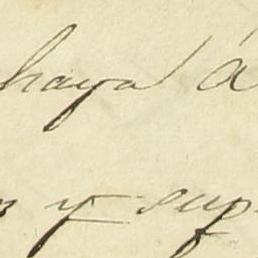 haya á
y sup